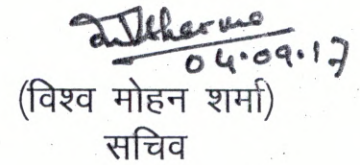 04.09.17
(विश्व मोहन शर्मा)
सचिव